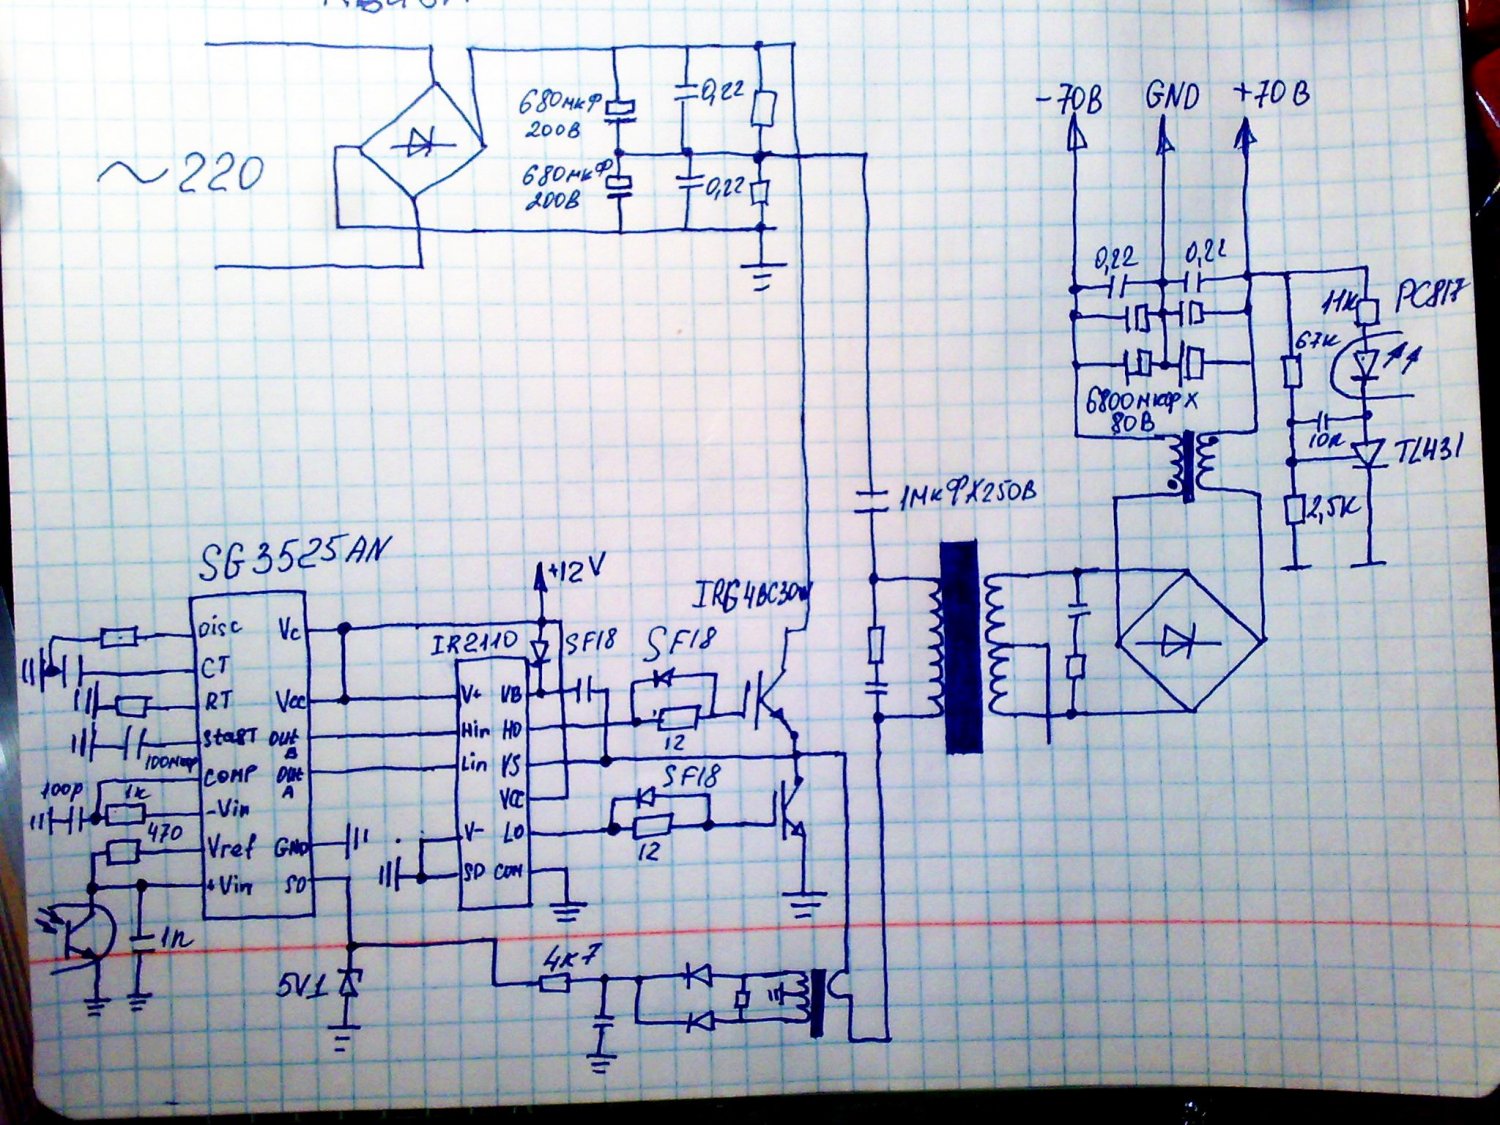 ~220
680мкФ
200В
680мкФ
200В
0,22
0,22
-70В GND +70В
0,22 0,22
6800мкФх
80В
11к
PC817
67к
10n
TL431
2,5к
1мкФХ250В
SG3525AN
Disc
CT
RT
START
COMP
-Vin
Vref
+Vin
Vc
Vcc
OUT
B
OUT
A
GND
SD
100мкф
100p
1к
470
1n
5V1
+12V
IR2110
SF18
V+
Hin
Lin
V-
SD
VB
HO
VS
VCC
LO
COM
SF18
12
SF18
12
IRG4BC30W
4к7